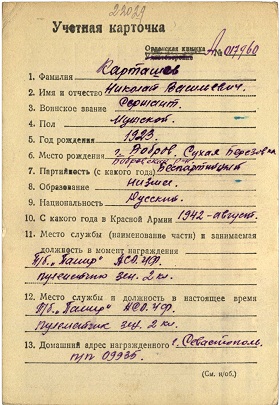 22029
Учетная карточка
Орденская книжка
Удостоверение № А 017960
1. Фамилия Карташев
2. Имя и отчество Николай Васильевич.
3. Воинское звание Сержант.
4. Пол Мужской.
5. Год рождения 1923.
6. Место рождения г. Бобров, Сухая Березовка
Бобровский
7. Партийность (с какого года) Беспартийный
8. Образование Низшее.
9. Национальность Русский.
10. С какого года в Красной Армии 1942-август.
11. Место службы (наименование части) и занимаемая
должность в момент награждения
П/б. "Памир" АСО. ЧФ.
пулеметчик зен. 2 кл.
12. Место службы и должность в настоящее время
П/б. "Памир" АСО. ЧФ.
пулеметчик зен. 2 кл.
13. Домашний адрес награжденного г. Севастополь.
п/п 09935.
(См. н/об.)